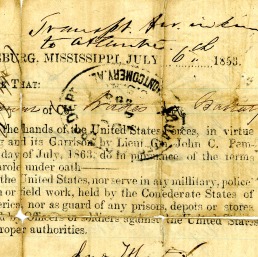 Transpt. Her. in
to Atlanta
SBURG, MISSISSIPPI, JULY 6th 1863.
THAT:
MONTGOMERY, AL
the hands of the United States Forces, in virtue
g and its Garrison by Lieut. Gen. John C. Pem-
day of July, 1863, do in pursuance of the terms
arole under oath
the United States, nor serve in any military, police
or field work, held by the Confederate States of
eries, nor as guard of any prison, depots or stores
Officers or soldiers against the United States
roper authorities.